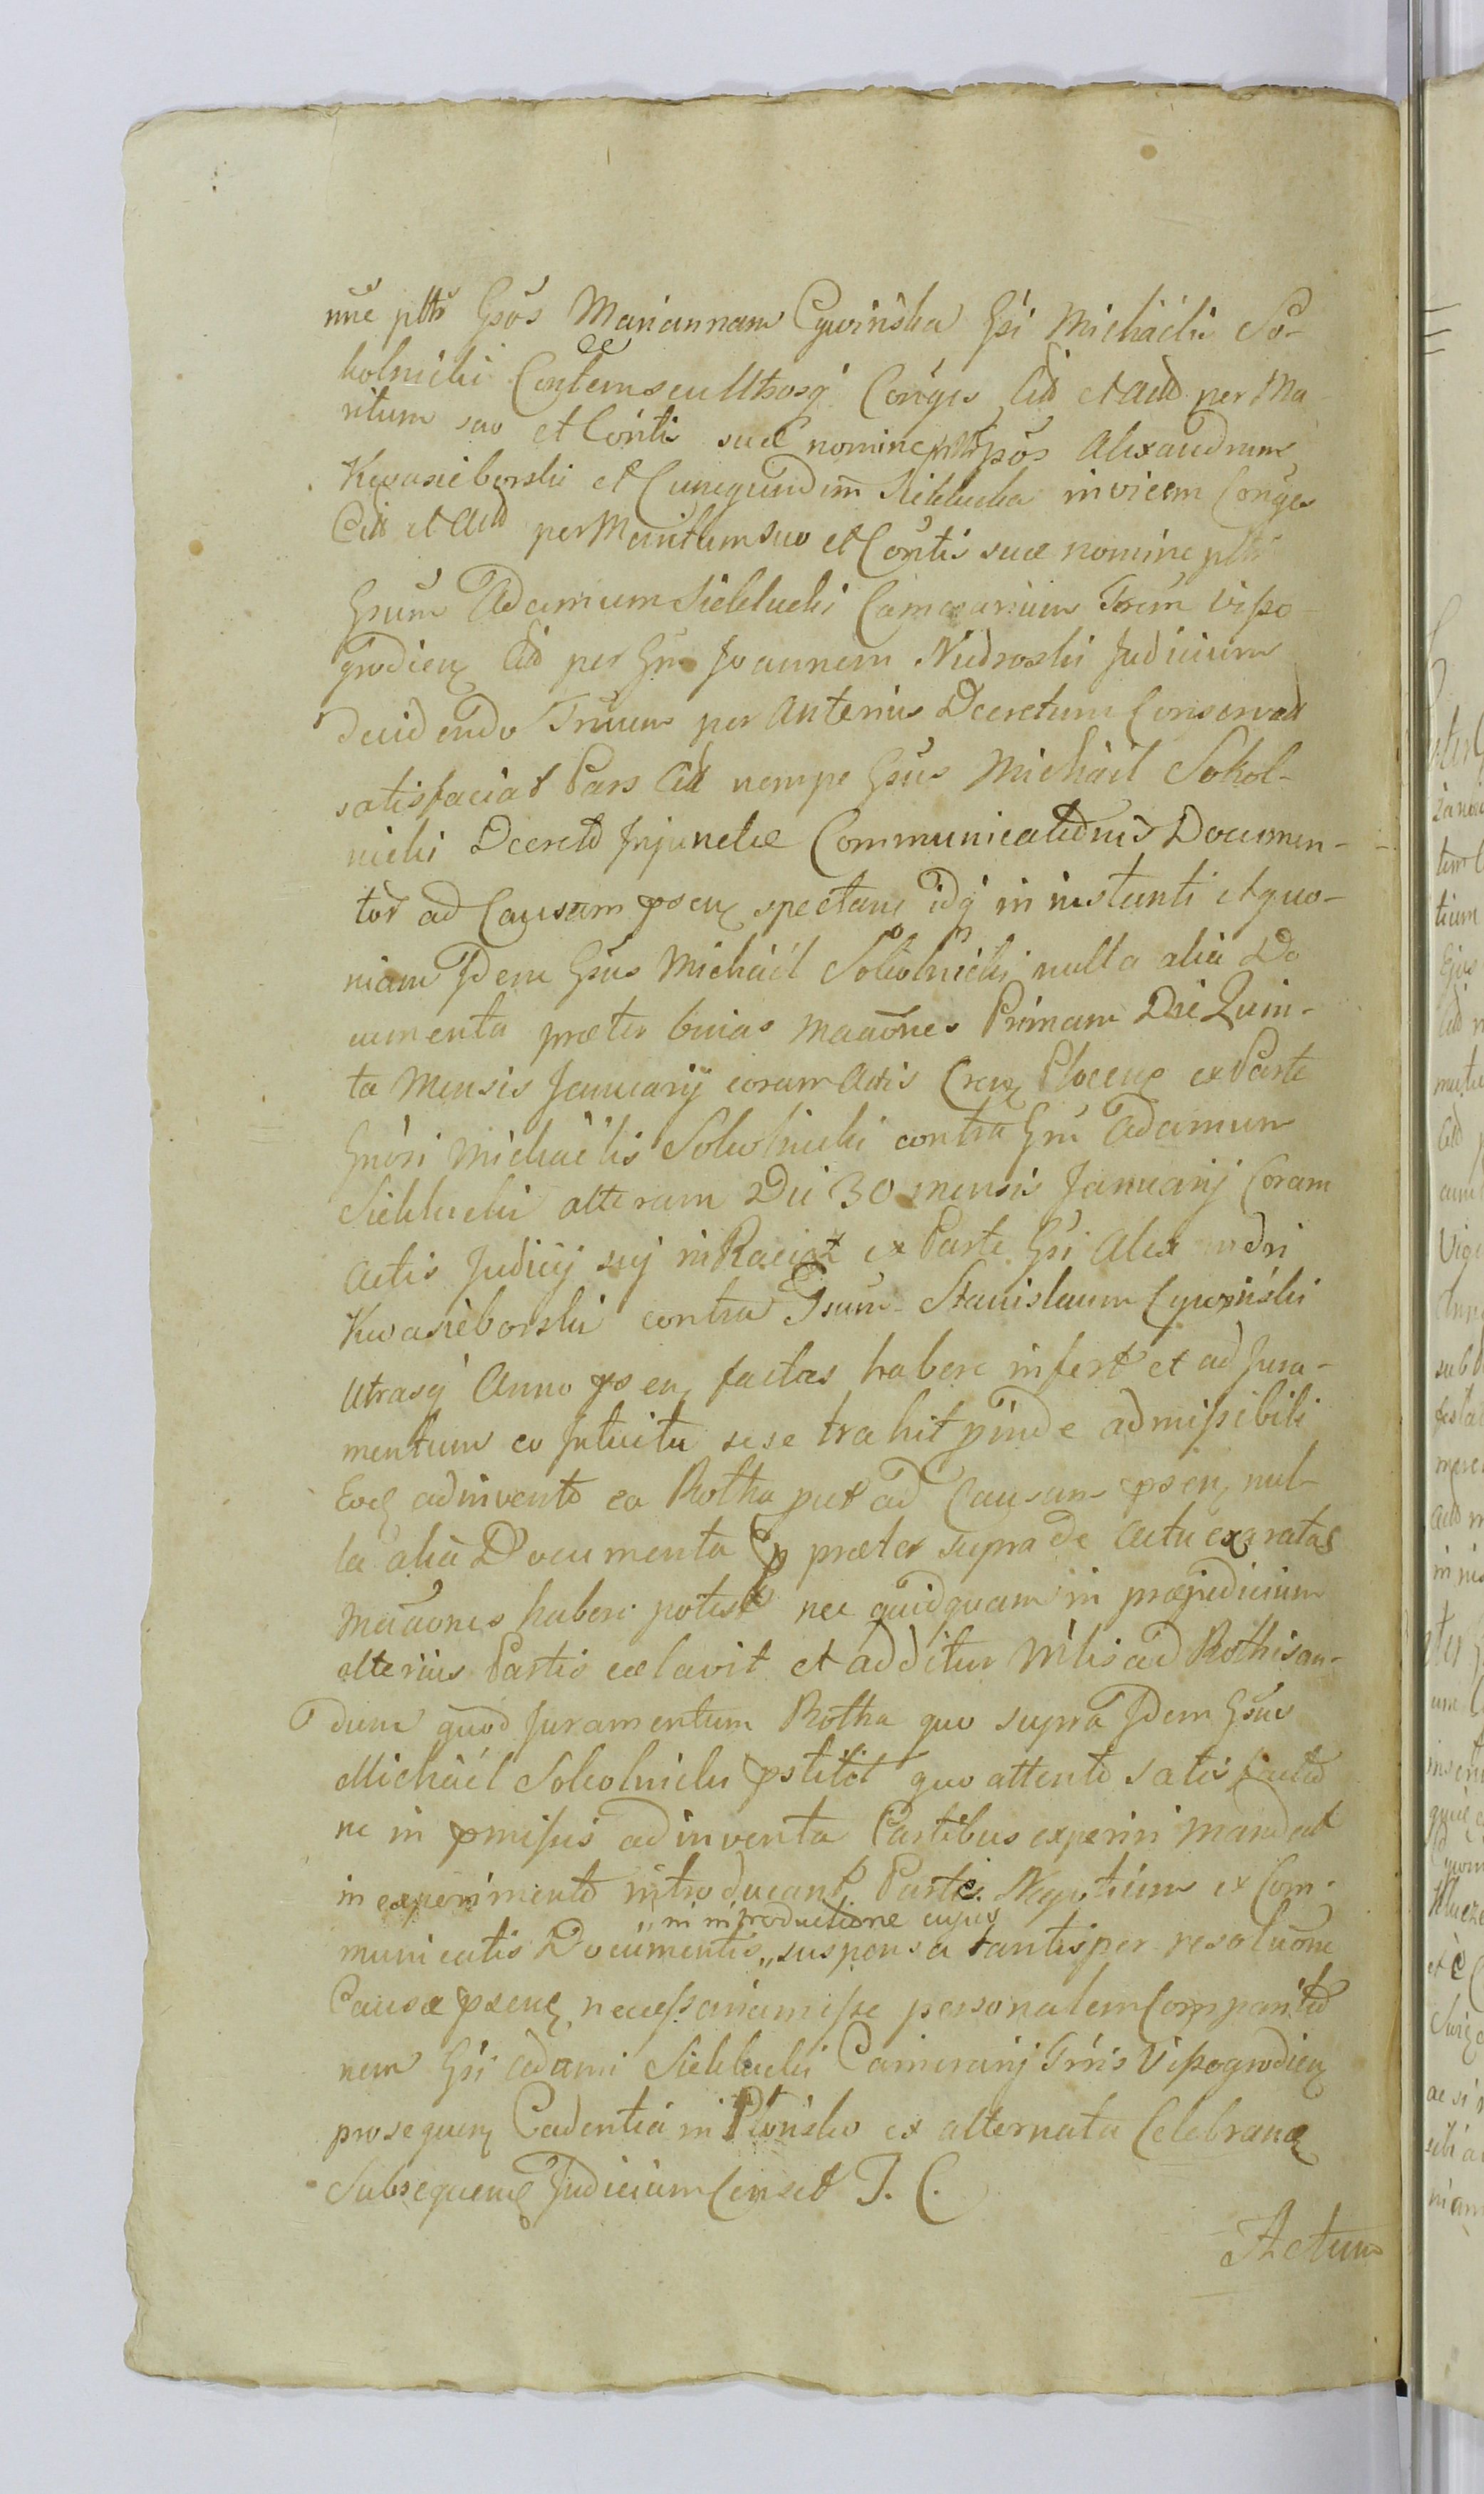 nne pltr Gsos Mariannam Cywinska Gsi Michaelis So-
kolnicki Contem seu Uthosq Conges Citt et Actt per Ma-
ritum suo et Contis suae nomine pltr Gsos Alexandrum
Kwasieborski et Cunegundim Sieklucka invicem Conges
Citt et Actt per Maritum suo et Contis suae nomine pltr
Gsum Adamum Sieklucki Camerarium Trem Visso-
grodien Citt per Gm Joannem Niedroski Judicium
decidendo Trnum per anterius Decretum Conservatt
satisfaciat Pars Citt nempe Gsus Michael Sokol-
nicki Decreto Injunctae Communicationis Documen-
tor ad Causam psen spectan idq in instanti et quo-
niam Idem Gsus Michael Sokolnicki nulla alia Do
cumenta praeter binas Maaones Primam Die Quin-
ta Mensis Januarij coram Actis Cren Plocen ex Parte
Gnosi Michaelis Sokolnicki contra Gm Adamum
Sieklucki alteram Die 30 mensis Januarij Coram
Actis Judicij sui in Raciąż ex Parte Gsi Alexandri
Kwasieborski contra Gsum Stanislaum Cywinski
Utrasq Anno psen factas habere infert et ad Jura-
mentum eo Intuitu sese trahit proinde admissibili
Eoq adinvento ea Rotha put ad Causam psen nul-
la alia Documenta praeter supra de Actu exaratas
Maaones habere potest nec quidquam in praejudicium
alterius Partis celavit et additur Mtlis ad Rothisan-
dum quod Juramentum Rotha quo supra Idem Gsus
Michael Sokolnicki pstitit quo attento satisfactio
ne in pmissis adinventa Partibus experiri mandat
in experimento introducant Partes Negotium ex Com-
municatis Documentis „in introductione cujus„ suspensa tantisper resoluone
Causae psen necessariam isse personalem Comparitio
nem Gsi Adami Sieklucki Camerarij Trris Vissogrodien
prosequen Cadentia in Płonsko ex alternata Celebran
Subsequen Judicium Censet J. C.
Actum